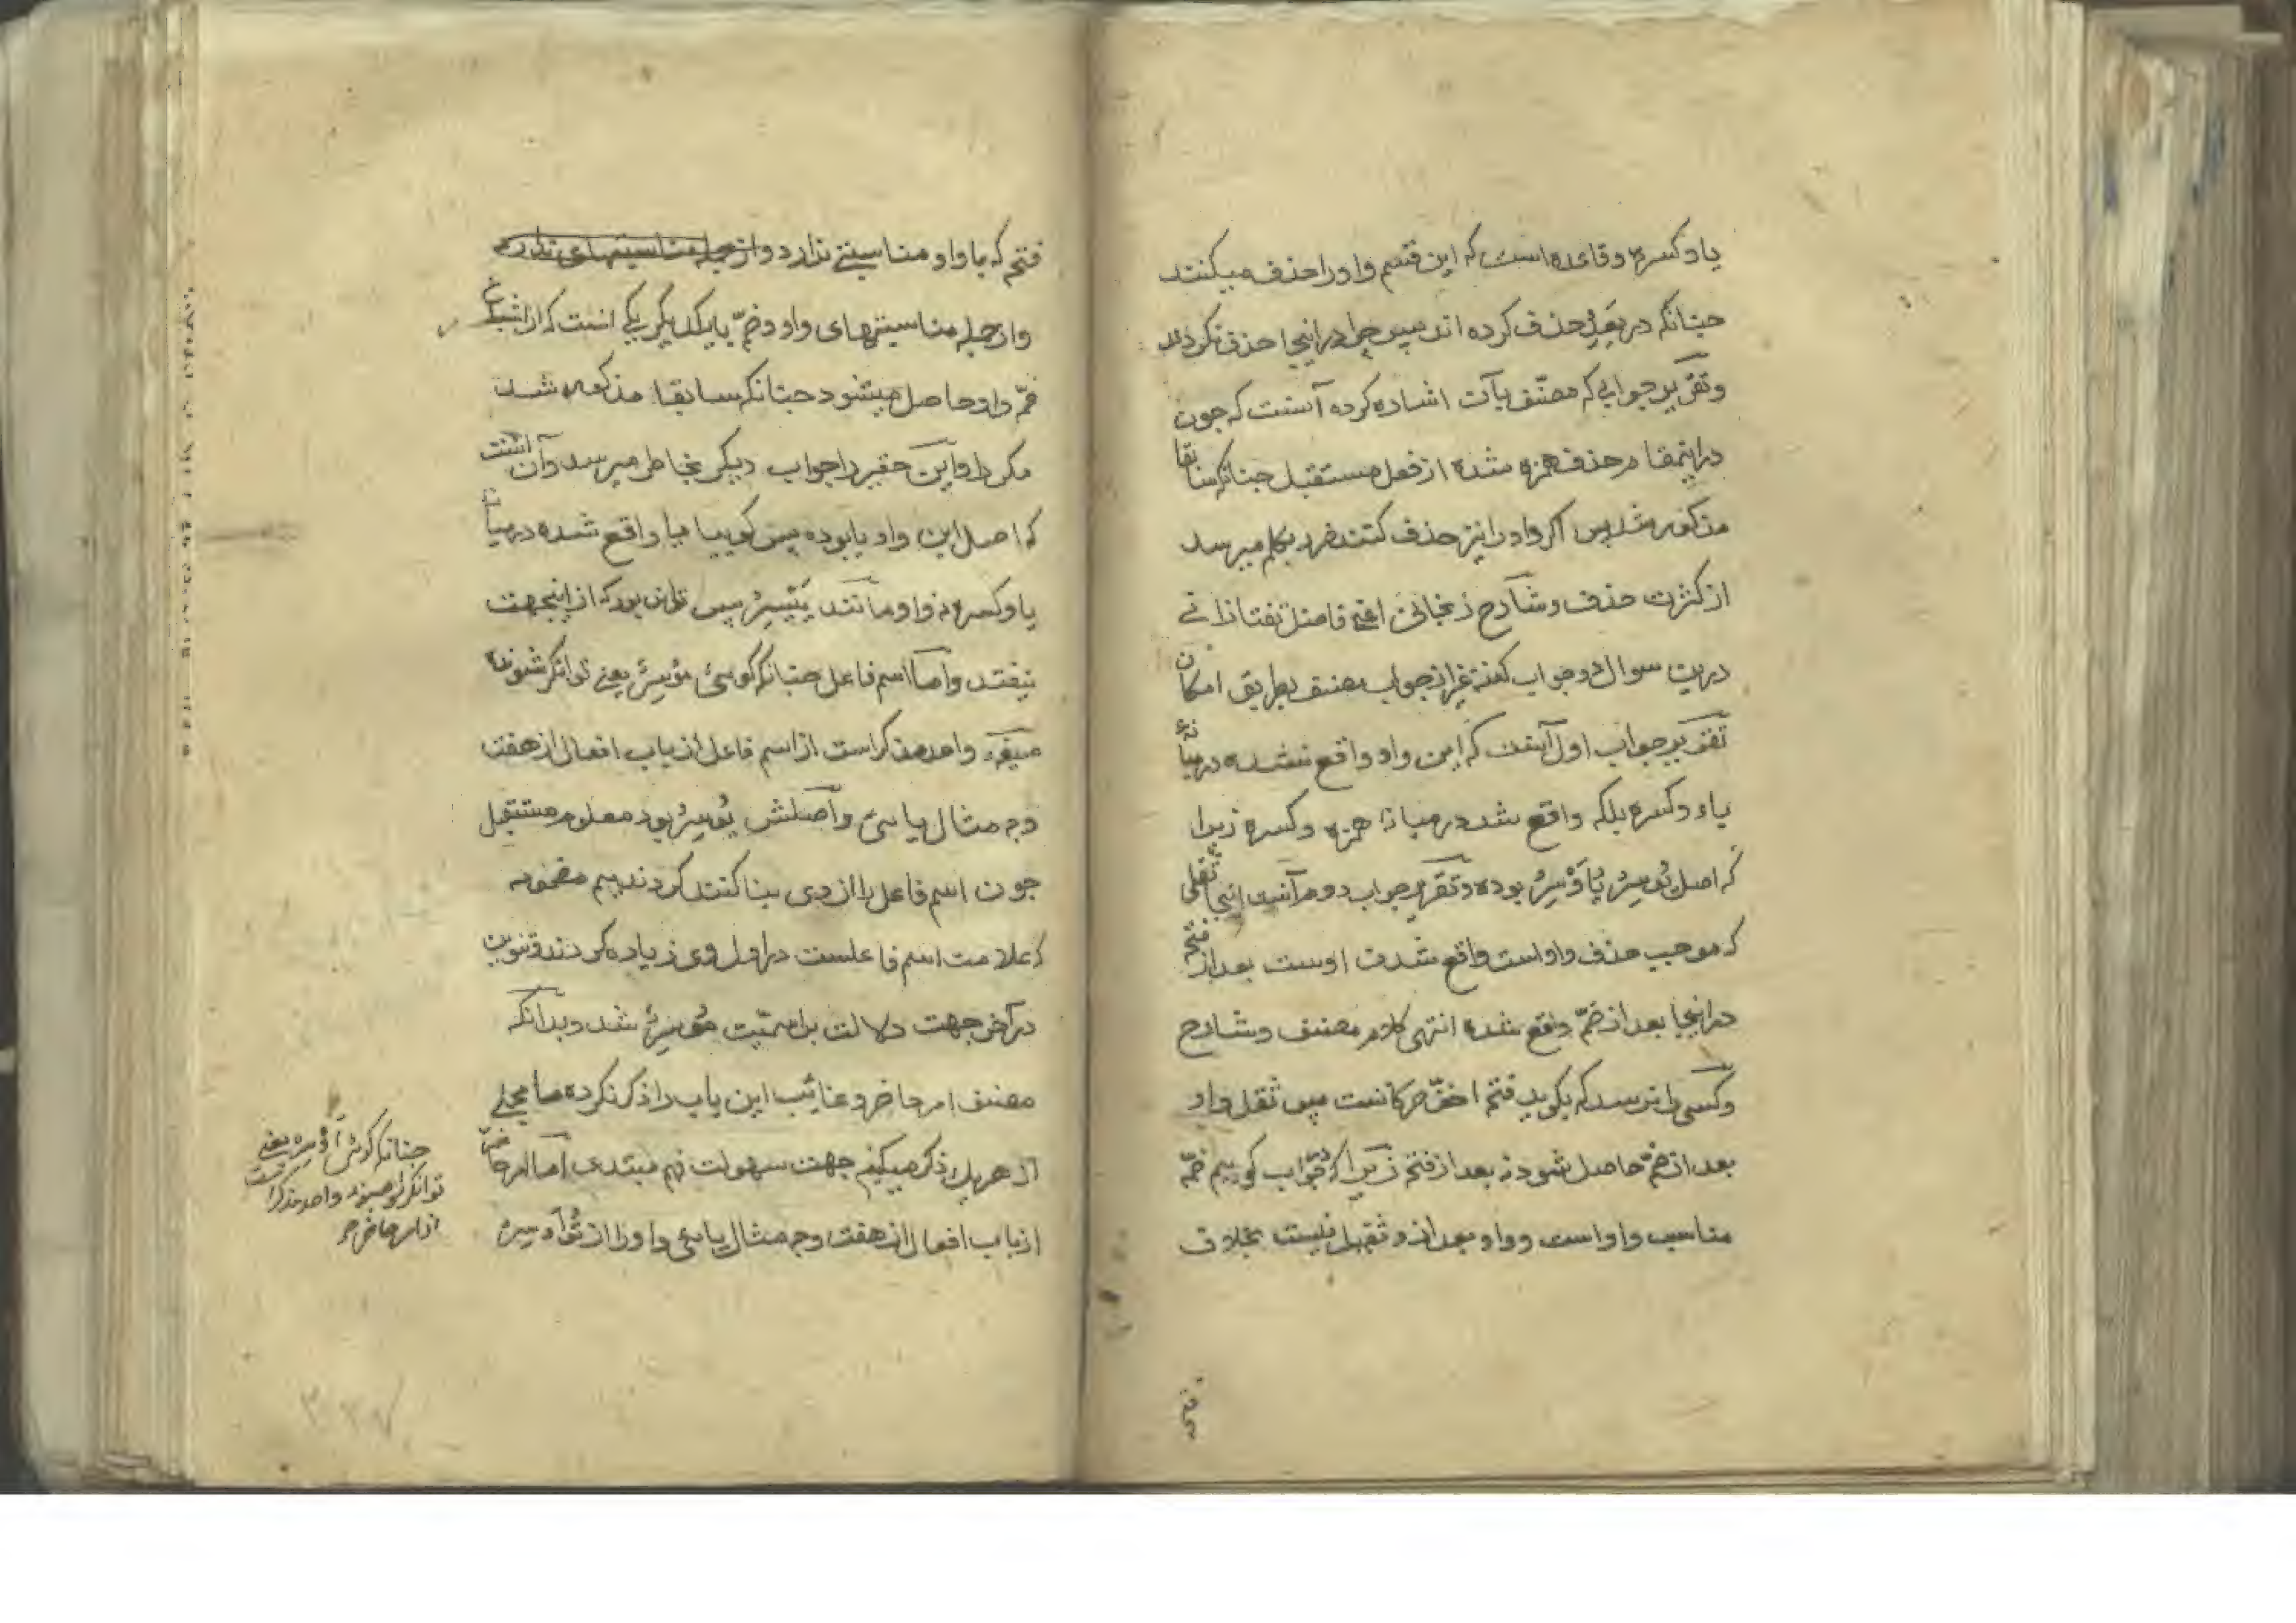 یا و کسره و قاعده است که این قسم واو را حذف میکنند
چنانکه در یَعِدُ حذف کرده اند پس چرا در اینجا حذف نکردند
و تقریر جوابی که مصنّف بآن اشاره کرده آنست که چون
در اینمقام حذف همزه شده از فعل مستقبل چنانکه سابقا
مذکور شد پس اگر واو را نیز حذف کنند ضرر بکلم میرسد
از کثرت حذف و شارح زنجانی اعنی فاضل تفتازانی
درین سوال دو جواب گفته غیر از جواب مصنف بطریق امکان
تقریر جواب اول آنست که این واو واقع نشده در میانهٔ
یاء و کسره بلکه واقع شد در میانه همزه و کسره زیرا
که اصل یُوسِرُ یُاَوْسِرُ بوده و تقریر جواب دوم آنست اینجا ثقلی
که موجب حذف واو است واقع شدن اوست بعد از فتحه
در اینجا بعد از ضمّ واقع شده انتهی کلام مصنف و شارح
و کسی را نرسد که بگوید فتحه اخفّ حرکاتست پس ثقل واو
بعد از ضمّه حاصل شود نه بعد از فتحه زیرا که جواب گوییم ضمّه
مناسب واو است و واو بعد از و ثقیل نیست بخلاف
فتحه
فتحه که با واو مناسبتی ندارد
و از جمله مناسبتهای واو و ضمّه با یکدیگر یکی اینست که از اشباع
ضمّه واو حاصل میشود چنانکه سابقا مذکور شد
مکررا و این حقیر را جواب دیگر بخاطر میرسد و آن اینست
که اصل این واو یا بوده پس گوییا یا واقع شده در میان
یا و کسره نه واو مانند یَیْسِرُ پس تواند بود که از اینجهت
نیفتد و امّا اسم فاعل چنانکه گوئی مُوسِرٌ یعنی توانگر شونده
صیغه واحد مذکر است از اسم فاعل از باب افعال از هفت
وجه مثال یائی و اصلش یُوسِرُ بود معلوم مستقبل
چون اسم فاعل را از وی بنا کنند کردند میم مضمومه
که علامت اسم فاعلست در اول وی زیاده کردند و تنوین
در آخر جهت دلالت بر اسمیّت مُوسِرٌ شد و بدانکه
مصنف امر حاضر و غائب این باب را ذکر نکرده ما مجملی
از هر یک ذکر میکنیم جهت سهولت فهم مبتدی امّا امر حاضر
از باب افعال از هفت وجه مثال یائی واو را از تُوْسِرُ
چنانکه گوئی اَوْسِرْ یعنی
واحد مذکر است
از امر حاضر